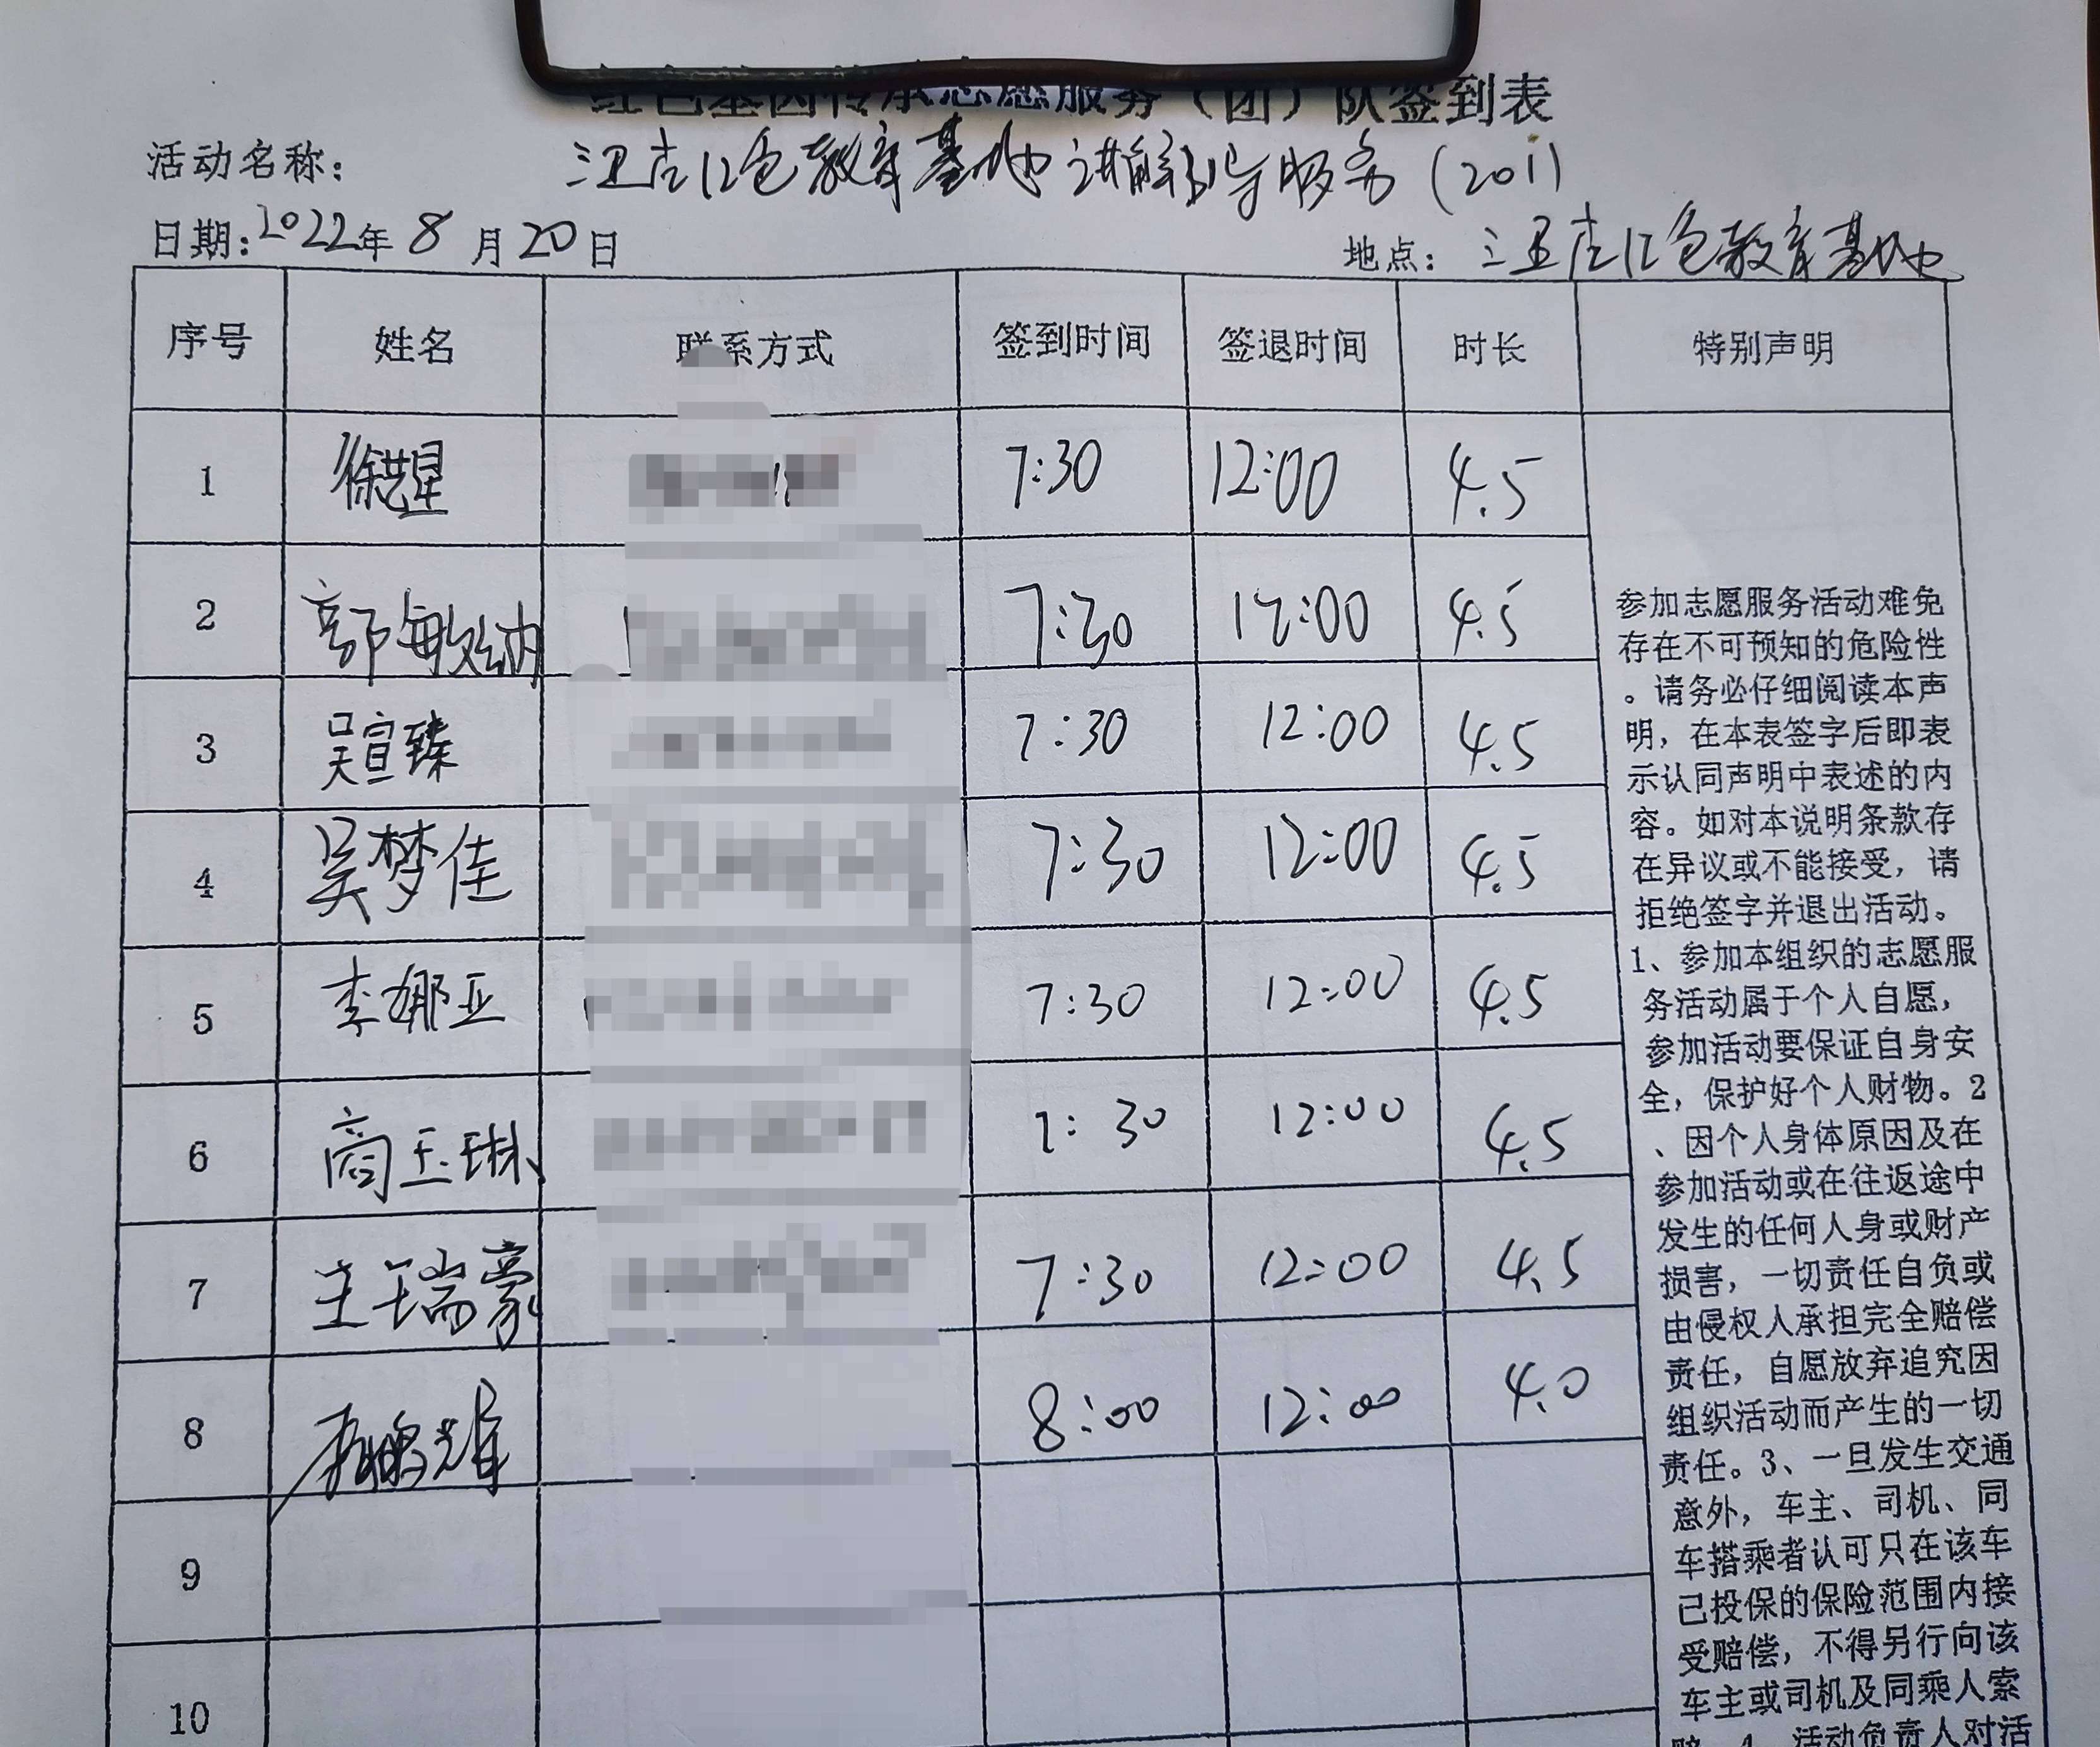 红色基因传承志愿服务（团）队签到表
活动名称： 三卫庄红色教育基地讲解引导服务（201）
日期：2022年8月20日 地点：三卫庄红色教育基地
序号 姓名 联系方式 签到时间 签退时间 时长 特别声明
1 徐艺星 7:30 12:00 4.5
2 郭敏纳 7:30 12:00 4.5
3 吴宣臻 7:30 12:00 4.5
4 吴梦佳 7:30 12:00 4.5
5 李娜亚 7:30 12:00 4.5
6 商玉琳 7:30 12:00 4.5
7 王瑞豪 7:30 12:00 4.5
8 8:00 12:00 4.0
9
10
参加志愿服务活动难免
存在不可预知的危险性
。请务必仔细阅读本声
明，在本表签字后即表
示认同声明中表述的内
容。如对本说明条款存
在异议或不能接受，请
拒绝签字并退出活动。
1、参加本组织的志愿服
务活动属于个人自愿，
参加活动要保证自身安
全，保护好个人财物。2
、因个人身体原因及在
参加活动或在往返途中
发生的任何人身或财产
损害，一切责任自负或
由侵权人承担完全赔偿
责任，自愿放弃追究因
组织活动而产生的一切
责任。3、一旦发生交通
意外，车主、司机、同
车搭乘者认可只在该车
已投保的保险范围内接
受赔偿，不得另行向该
车主或司机及同乘人索
赔。4、活动负责人对活